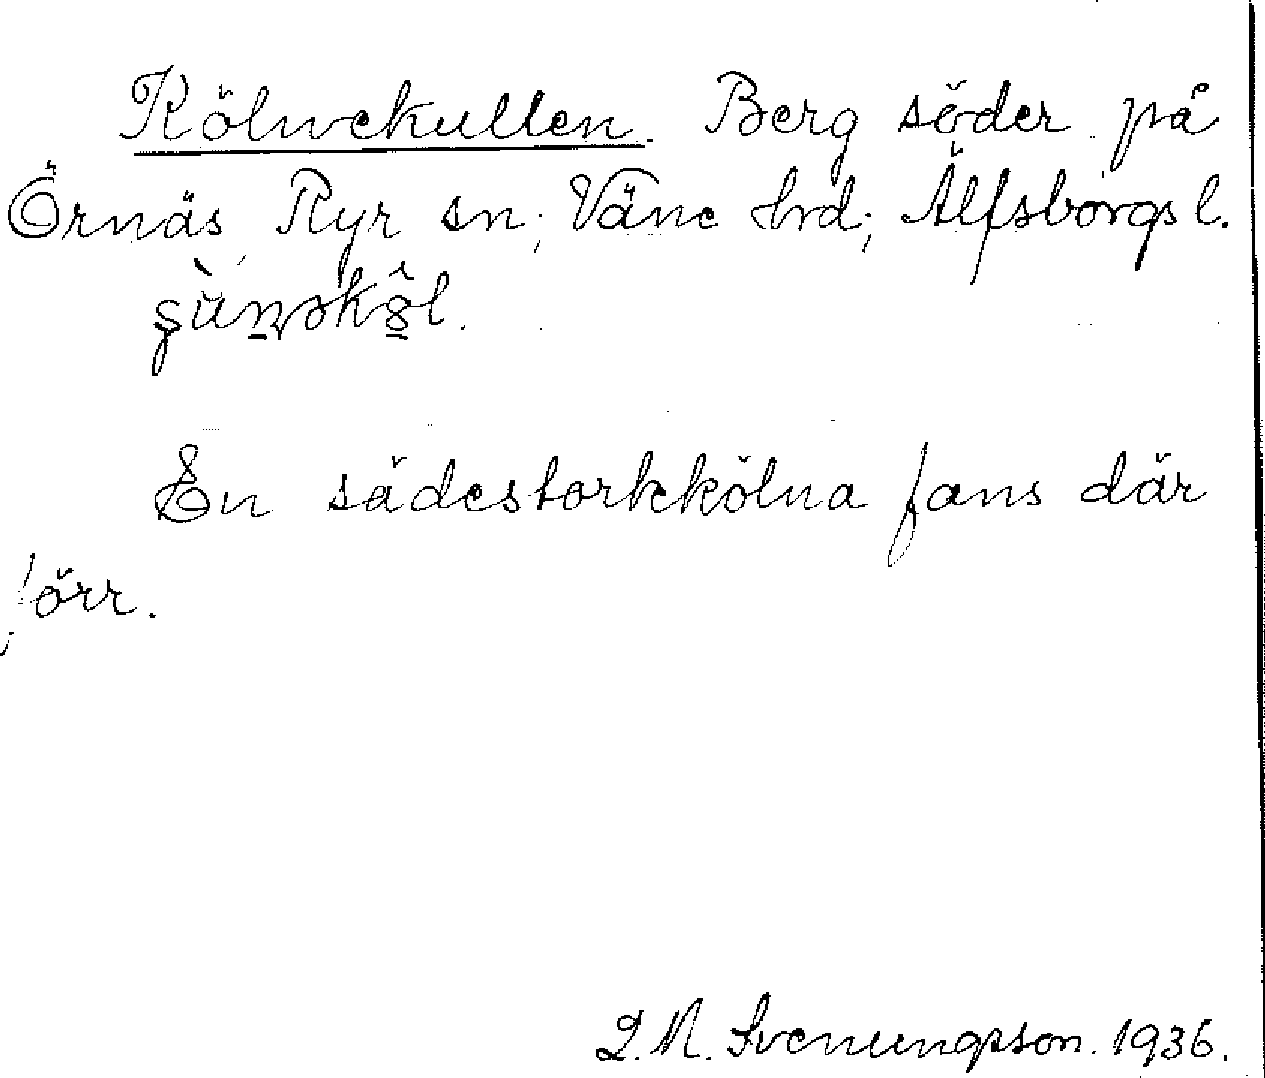 Kölnekullen. Berg söder på
Örnäs, Ryr sn; Väne hrd; Älfsborgs l.
En sädestorkkölna fans där
förr.
L. M. Svenungsson. 1936.